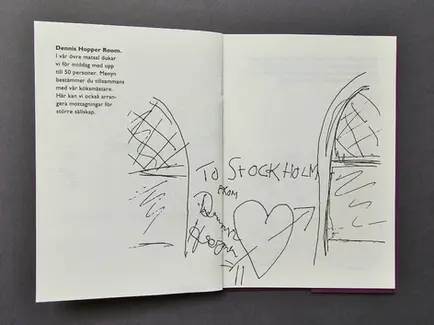 Dennis Hopper Room.
I vår övre matsal dukar
vi för middag med upp
till 50 personer. Menyn
bestämmer du tillsammans
med vår kökemästare.
Här kan vi också arran-
gera mottagningar för
större sällskap.
TO STOCKHOLM
FROM
Dennis
Hopper